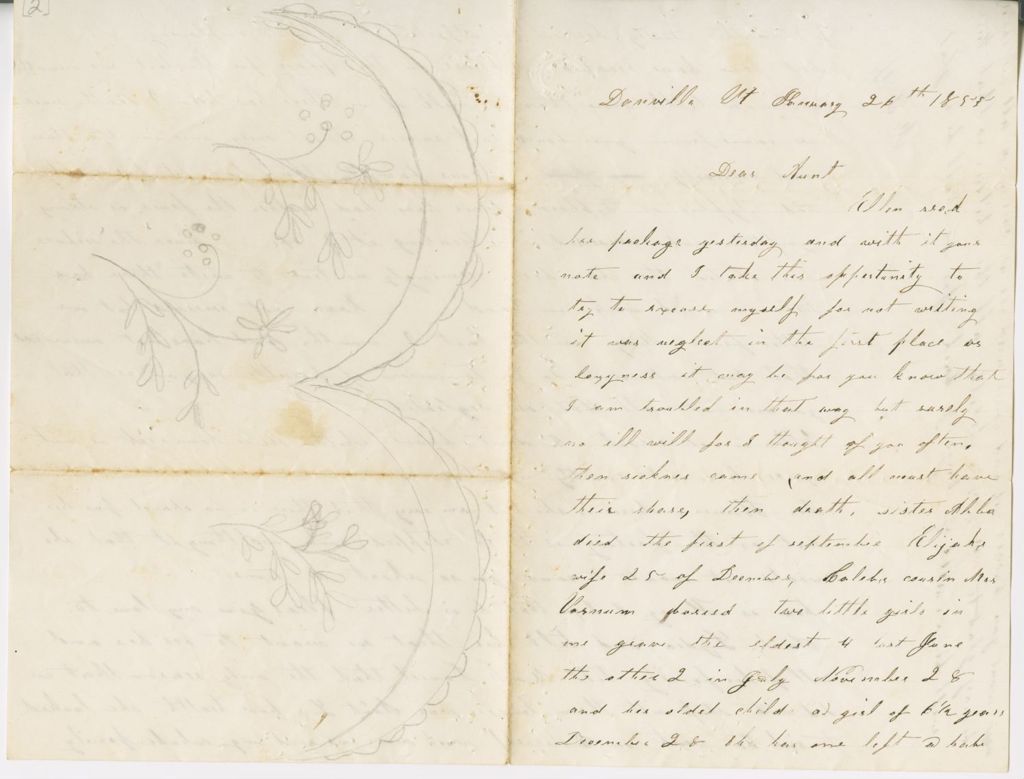 [2]
Danville Vt 26th 1855
Dear Aunt
read
her package yesterday and with it your
note and I take this opportunity to
try to excuse myself for not writing
it was neglect in the first place or
it may be for you know that
I am troubled in that way but surely
no ill will for I thought of you often,
then sicknes came and all must have
their share, then death, sister
died the first of september Elijahs
wife 25 of December, Calebs cousin Mrs
Varnum two little girls in
one grave the oldest 4 last June
the other 2 in July November 28
and her oldest child a girl of 6½ years
December 28 has one left a babe